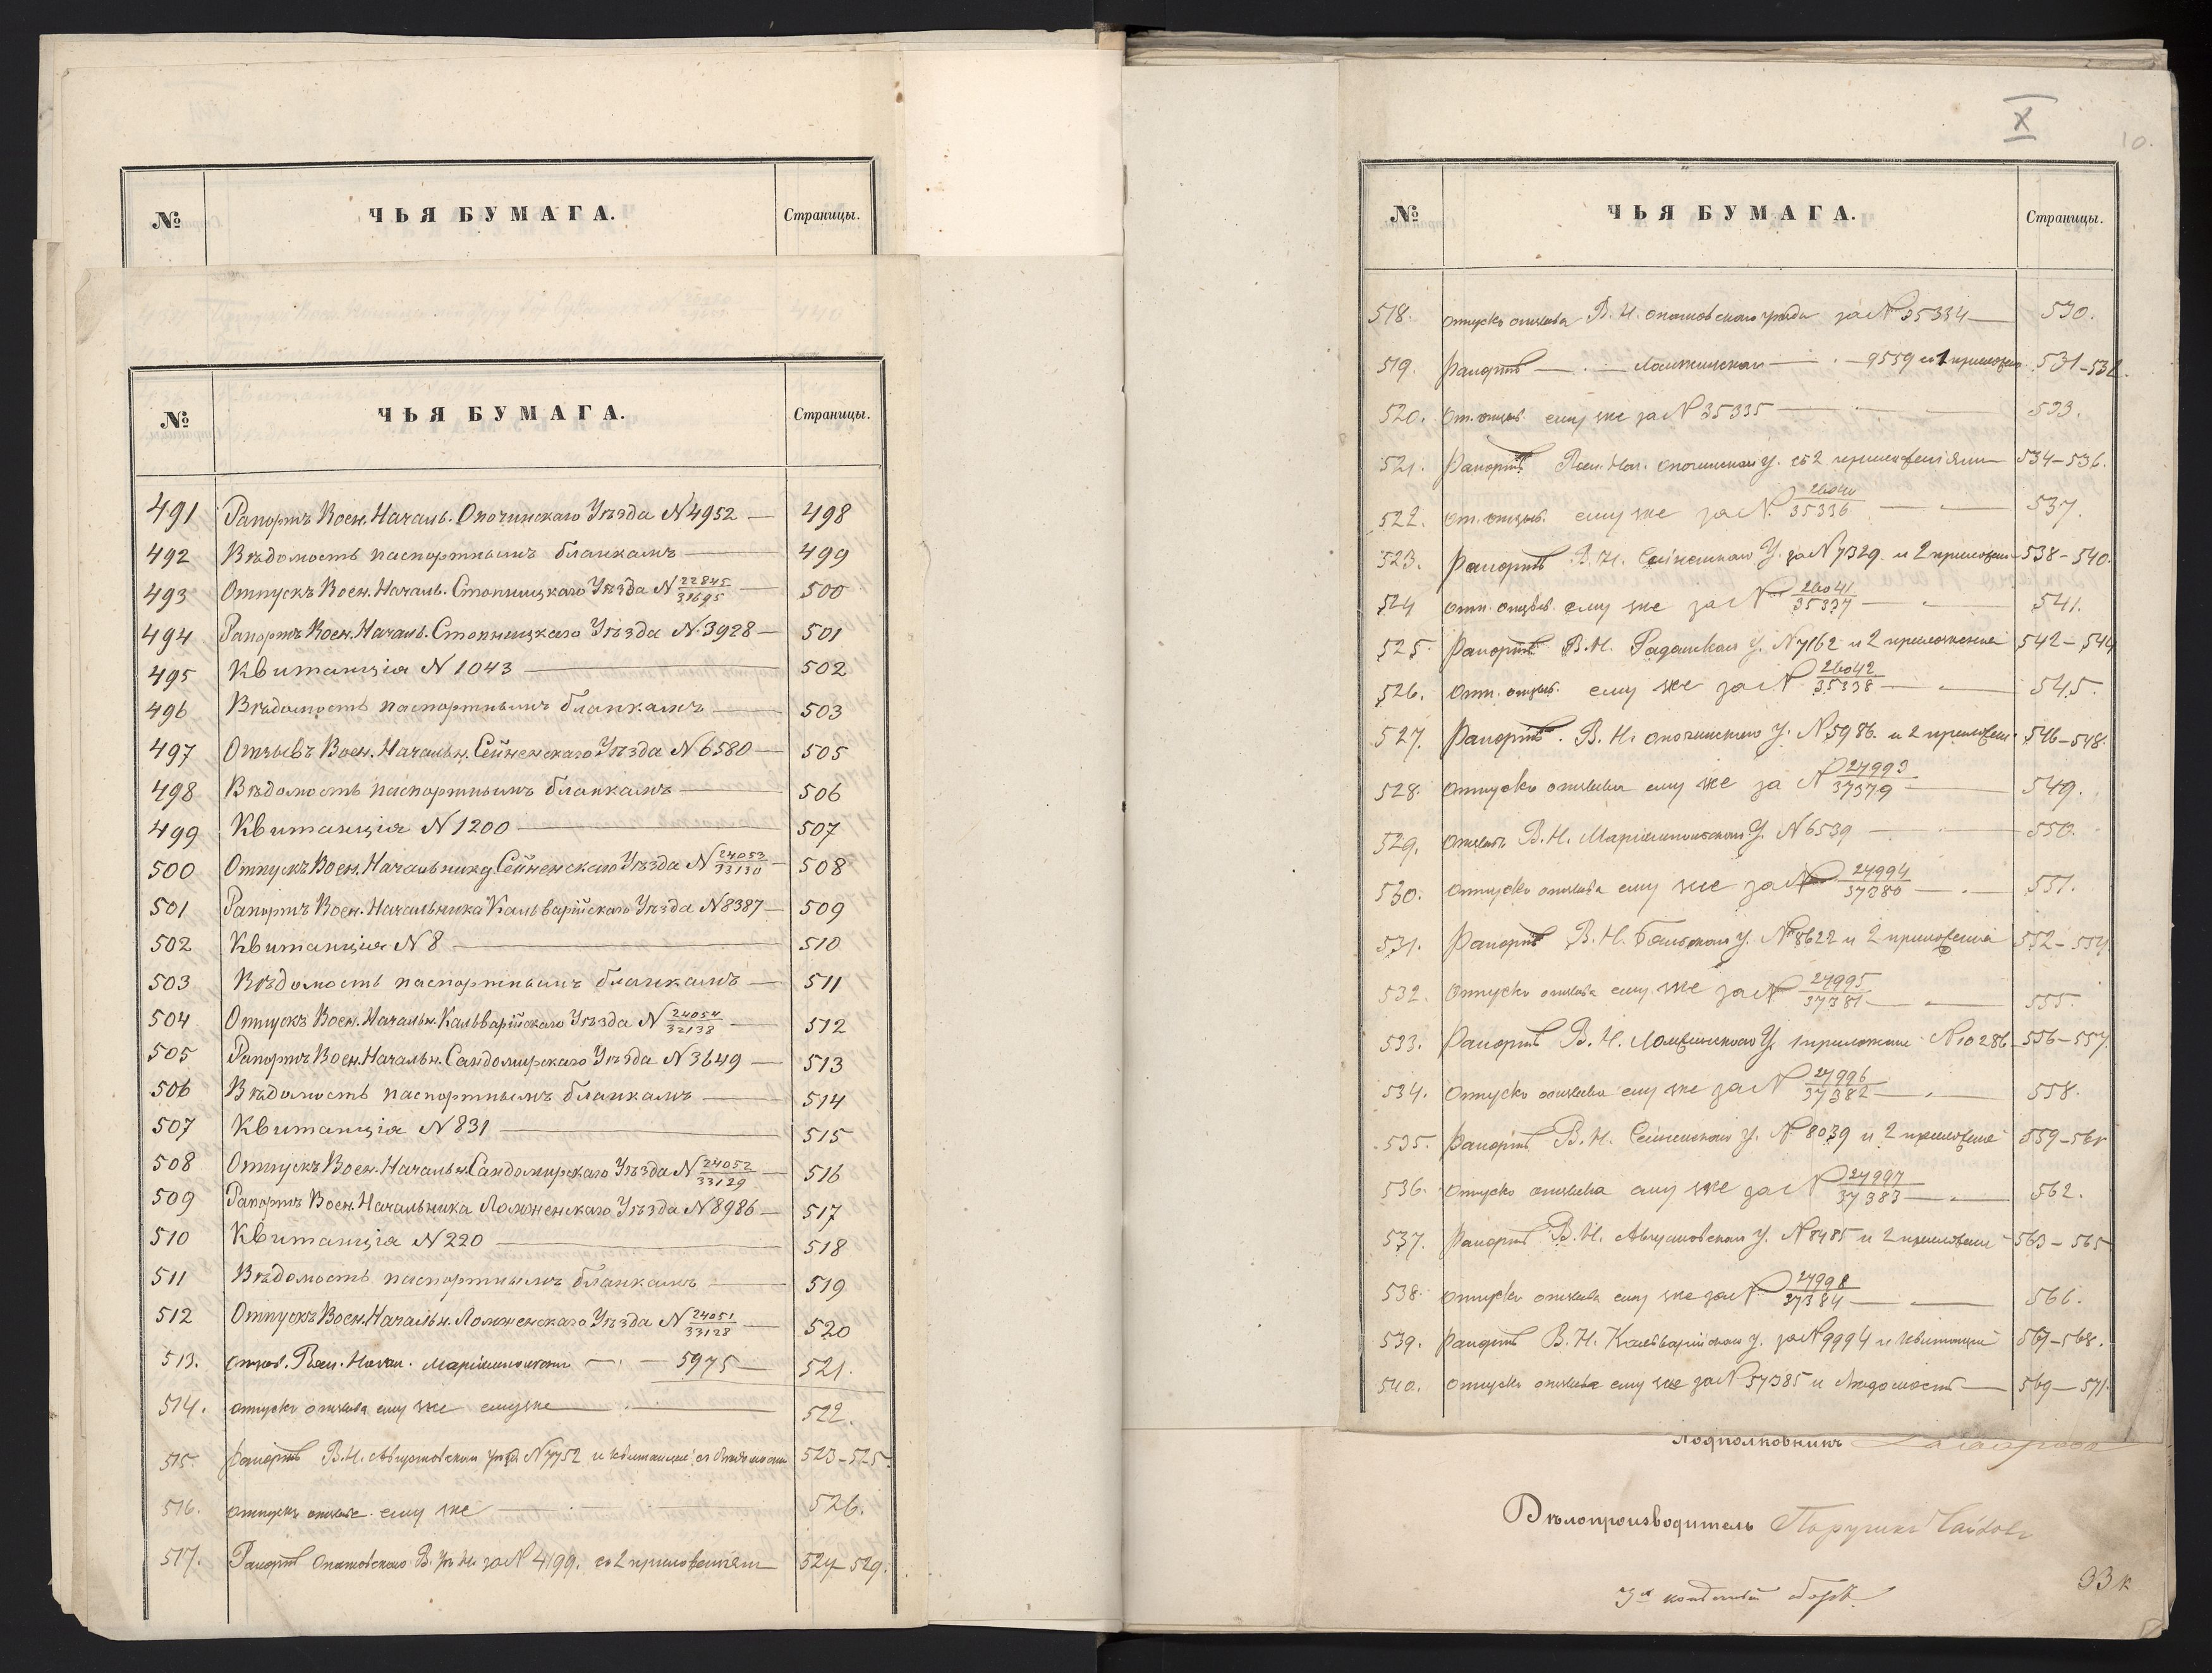 № ЧЬЯ БУМАГА. Страницы.
№ ЧЬЯ БУМАГА. Страницы.
491 Рапортъ Воен. Началь. Опочинскаго Уѣзда N 4952 — 498
492 Вѣдомость паспортнымъ бланкамъ — 499
493 Отпускъ Воен. Началь. Стопницкаго Уѣзда N 22845/31695 — 500
494 Рапортъ Воен. Началь. Стопницкаго Уѣзда N. 3928 — 501
495 Квитанція N 1043 — 502
496 Вѣдомость паспортнымъ бланкамъ — 503
497 Отзывъ Воен. Начальн. Сейненскаго Уѣзда N 6580 — 505
498 Вѣдомость паспортнымъ бланкамъ — 506
499 Квитанція N 1200 — 507
500 Отпускъ Воен. Начальнику Сейненскаго Уѣзда N 24053/33130 — 508
501 Рапортъ Воен. Начальника Кальварійскаго Уѣзда N 8387 — 509
502 Квитанція N 8 — 510
503 Вѣдомость паспортнымъ бланкамъ — 511
504 Отпускъ Воен. Начальн. Кальварійскаго Уѣзда N 24054/32138 — 512
505 Рапортъ Воен. Начальн. Сандомирскаго Уѣзда N 3649 — 513
506 Вѣдомость паспортнымъ бланкамъ — 514
507 Квитанція N 831 — 515
508 Отпускъ Воен. Начальн. Сандомирскаго Уѣзда N 24052/33129 — 516
509 Рапортъ Воен. Начальника Ломженскаго Уѣзда N 8986 — 517
510 Квитанція N 220 — 518
511 Вѣдомость паспортнымъ бланкамъ — 519
512 Отпускъ Воен. Начальн. Ломженскаго Уѣзда N 24051/33128 — 520
513. Воен. Начал. — 5975 — 521.
514. отпускъ отзыва ему же — 522.
515. Рапортъ В. Н. Августовскаго N 7752 и 523-525.
516. отпускъ ему же — 526.
517. Рапортъ Опатовскаго В. за N 4199. съ 2 приложеніями 527-529.
X
10.
№ ЧЬЯ БУМАГА. Страницы.
518. отпускъ отзыва В. Н. опатовскаго уѣзда за N 35334 — 530.
519. Рапортъ — Ломжинскаго — 9559 и 1 531-532.
520. От. отзыв. ему же за N 35335 — 533.
521. Рапортъ Воен. Нач. опочинскаго У. съ 2 приложеніями 534-536.
522. От. отзыв. ему же за N. 26040/35336 — 537.
523. Рапортъ В. Н. Сейненскаго У. за N 7329. и 2 538-540.
524 Отп. отзыв. ему же за N 26041/35337 — 541.
525. Рапортъ В. Н. У. N 7162 и 2 приложенія 542-544
526. Отп. отзыв. ему же за N 26042/35338 — 545.
527. Рапортъ. В. Н. опочинскаго У. N 5986. и 2 546-548.
528. Отпускъ отзыва ему же за N 27993/37379 549.
529. Отзывъ В. Н. Маріампольскаго У. N 6539 — 550.
530. Отпускъ отзыва ему же за N 27994/37380 — 551.
531. Рапортъ В. Н. У. N 8622 и 2 приложенія 552-554
532. Отпускъ отзыва ему же за N 27995/37381 — 555.
533. Рапортъ В. Н. Ломжинскаго У. 1 N 10286 556-557.
534. Отпускъ отзыва ему же за N 27996/37382 — 558.
535. Рапортъ В. Н. Сейненскаго У. N 8039 и 2 приложенія 559-561
536. Отпускъ отзыва ему же за N 27997/37383 — 562.
537. Рапортъ В. Н. Августовскаго У. N 8485 и 2 563-565
538. отпускъ отзыва ему же за N 27998/37384 — 566.
539. Рапортъ В. Н. Кальварійскаго У. за N 9994 и квитанція 567-568.
540. Отпускъ отзыва ему же за N 37385 и вѣдомость — 569-571.
Подполковникъ
Дѣлопроизводитель Поручикъ
33к